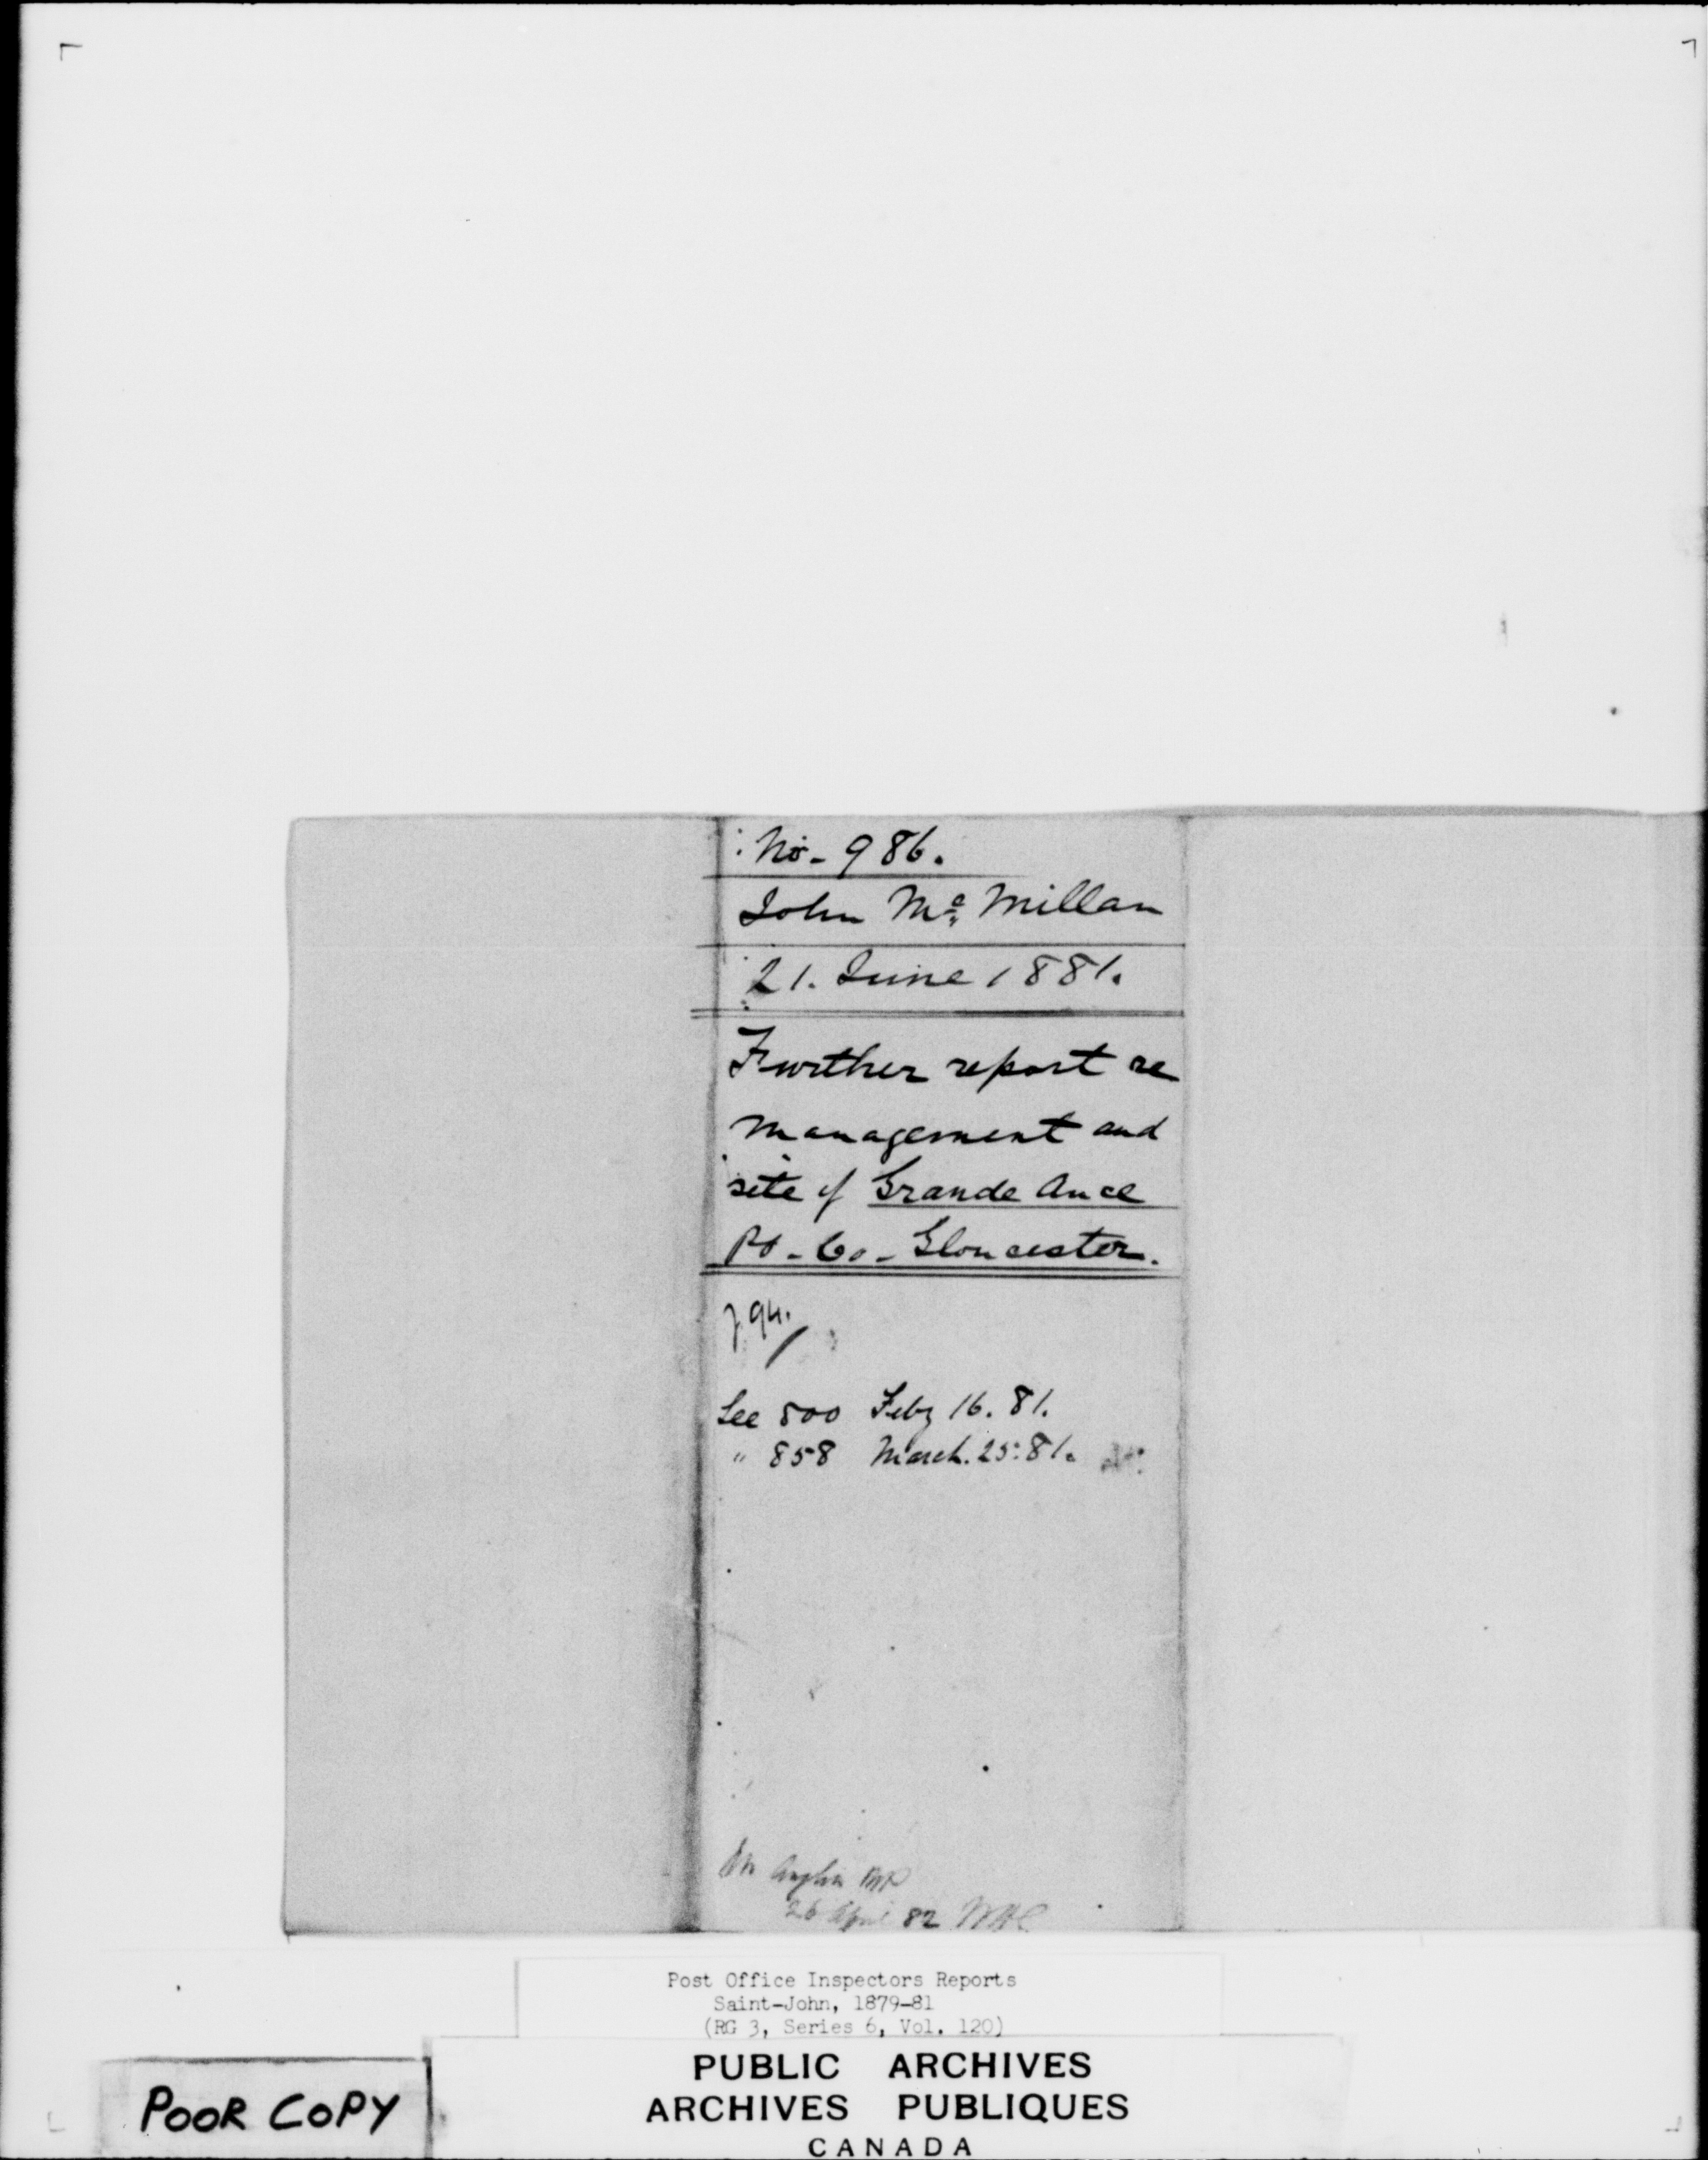 No- 986.
John Mc Millan
21. June 1881.
Further report re
management and
site of Grande Ance
PO- Co- Gloucester.
794.
See 800 Feby 16. 81.
" 858 March. 25. 81.
Mr Anglin MP
26 April 82
Post Office Inspectors Reports
Saint-John, 1879-81
(RG 3, Series 6, Vol. 120)
PUBLIC ARCHIVES
ARCHIVES PUBLIQUES
CANADA
POOR COPY